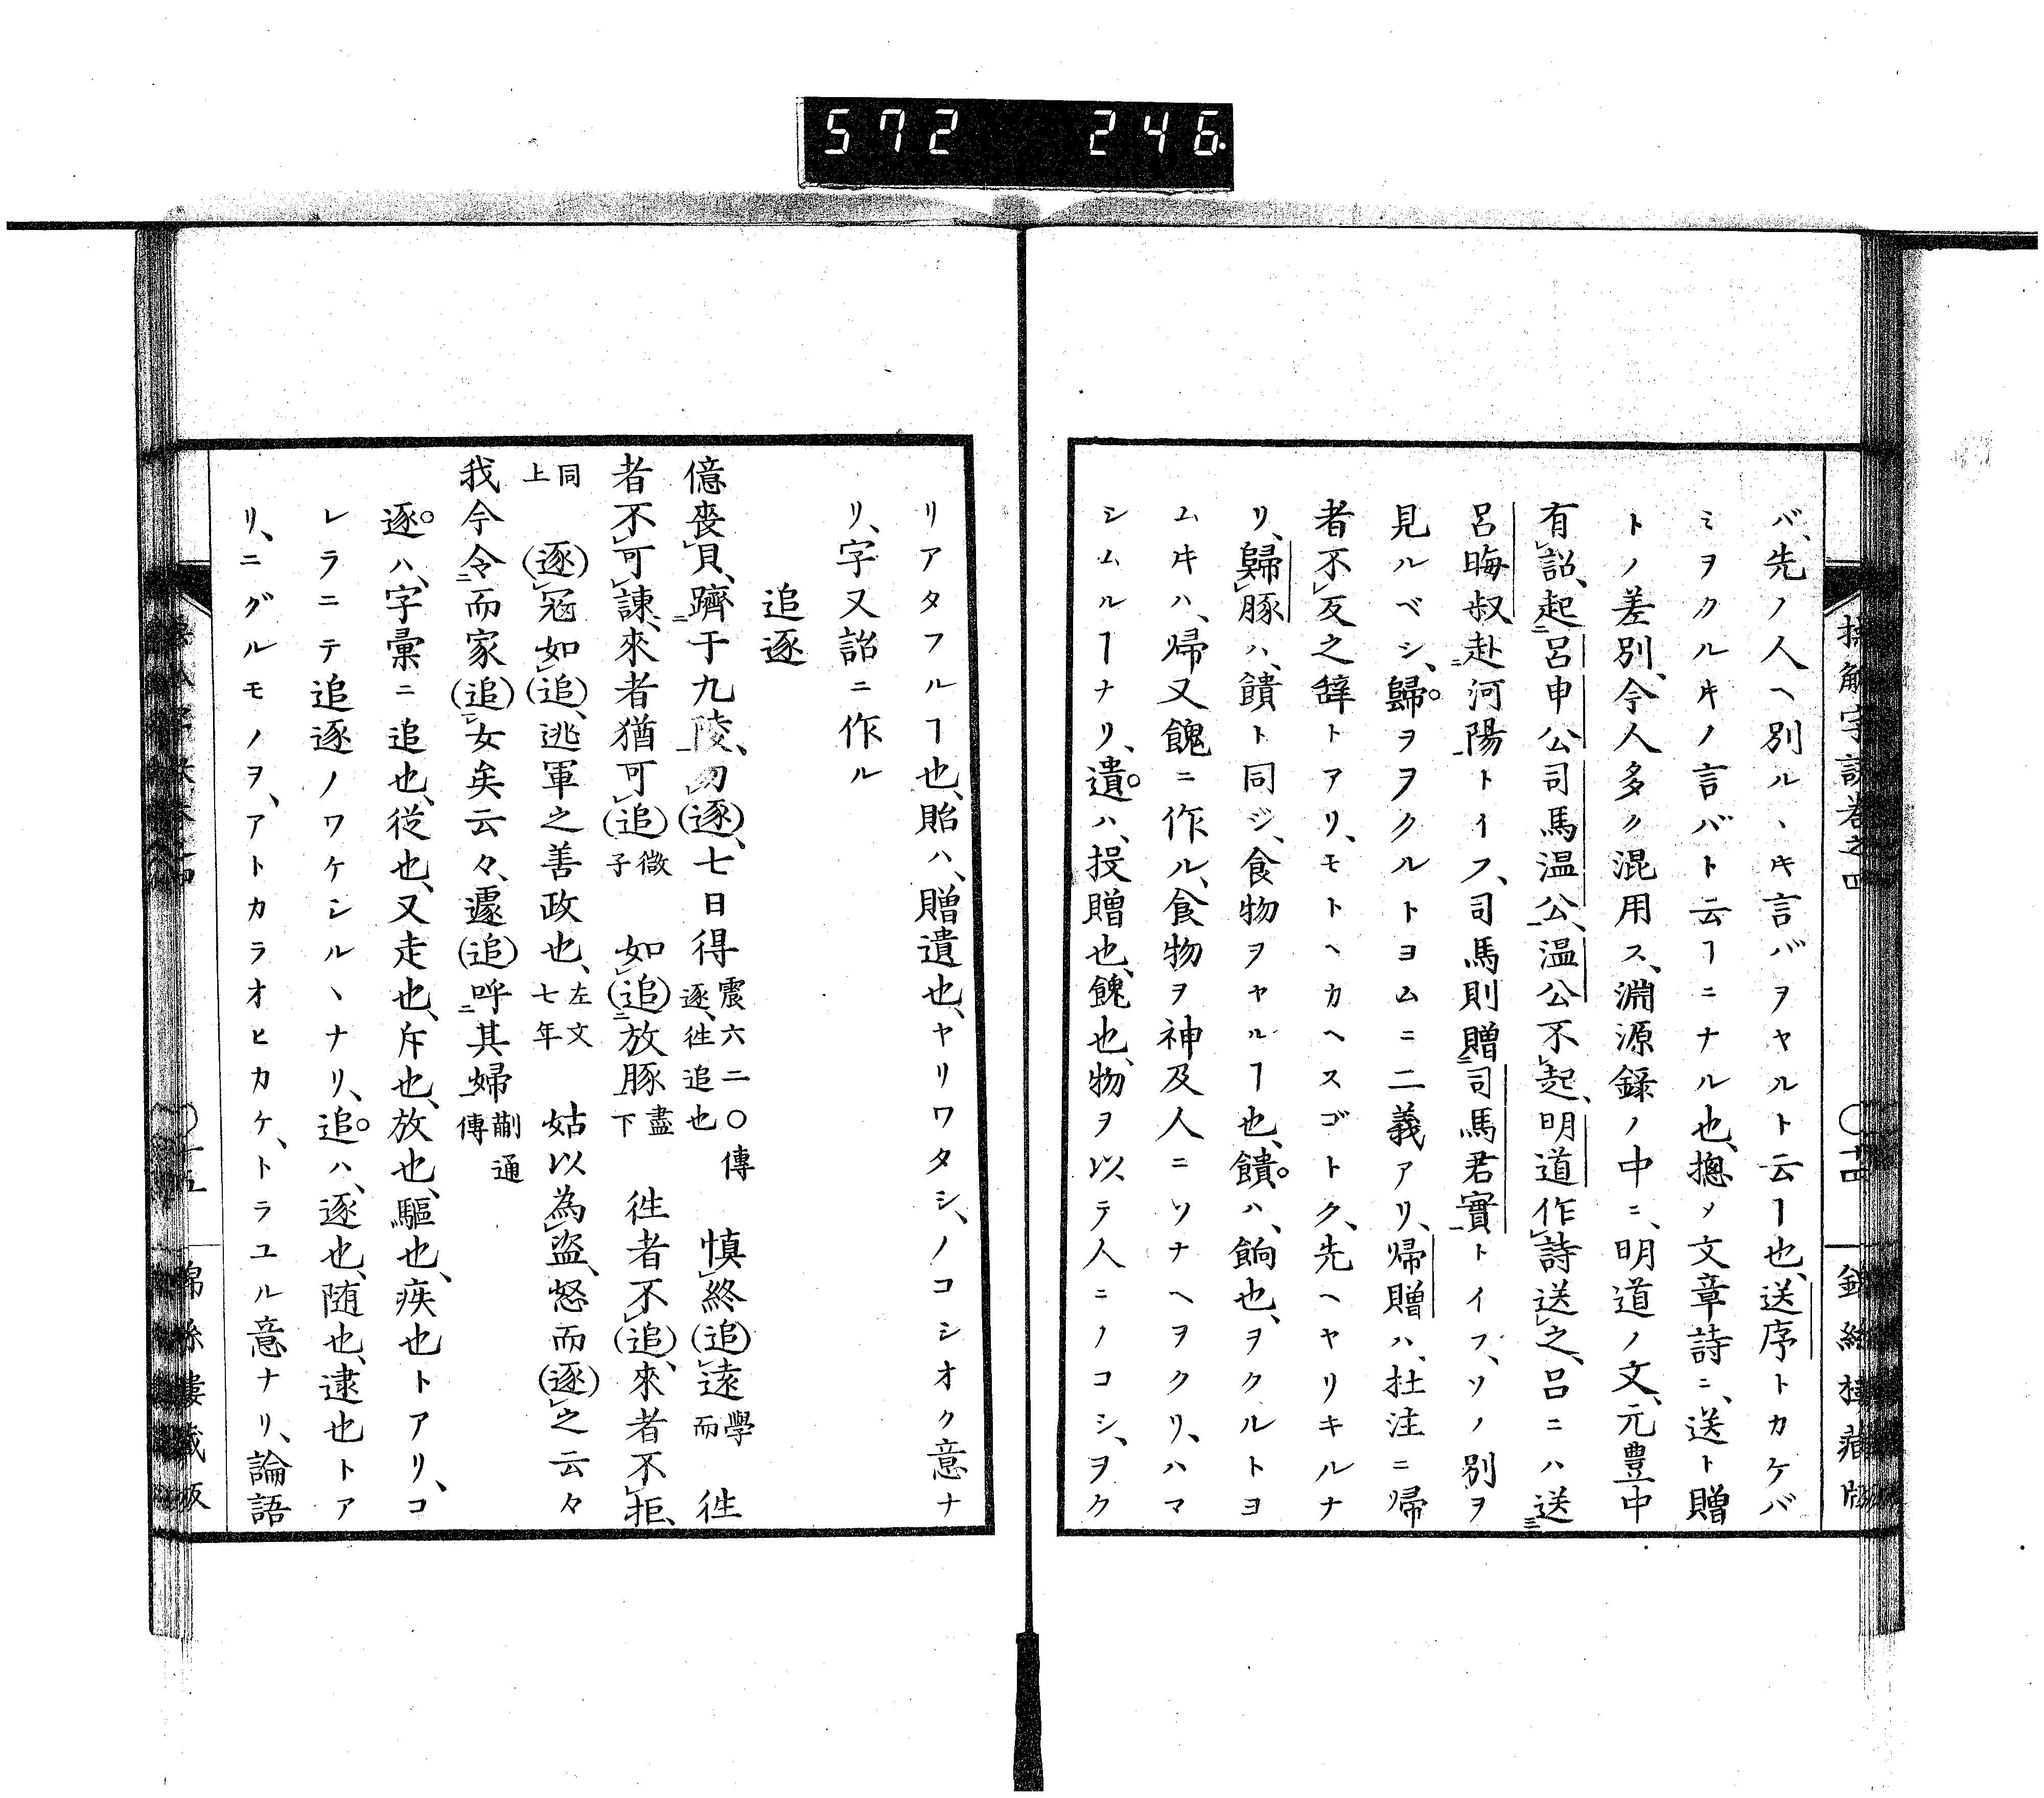 572 246
バ、先ノ人ヘ別ルヽキ言バヲヤルト云ヿ也、送序トカケバ
ミヲクルキノ言バト云ヿニナル也、摠ソ文章詩ニ、送ト贈
トノ差別、今人多ク混用ス、淵源録ノ中ニ、明道ノ文、元豊中
有詔、起二呂申公司馬温公一、温公不起、明道作詩送之、呂ニハ送三
呂晦叔赴二河陽一トイフ、司馬則贈二司馬君實一トイフ、ソノ別ヲ
見ルベシ、歸。ヲヲクルトヨムニ二義アリ、帰贈ハ、杜注ニ帰
者不反之辞トアリ、モトヘカヘスゴトク、先ヘヤリキルナ
リ、歸豚ハ、饋ト同ジ、食物ヲヤルヿ也、饋。ハ、餉也、ヲクルトヨ
ムキハ、帰又餽ニ作ル、食物ヲ神及人ニソナヘヲクリ、ハマ
シムルヿナリ、遺。ハ、投贈也、餽也、物ヲ以テ人ニノコシ、ヲク
リアタフルヿ也、貽ハ、贈遺也、ヤリワタシ、ノコシオク意ナ
リ、字又詒ニ作ル
追逐
億喪貝、躋二于九陵一、勿(逐)、七日得 震六二○傳逐、徃追也 慎終(追)遠 學而 徃
者不可諫、來者猶可(追) 微子 如(追)二放豚 盡下 徃者不(追)、來者不拒、
同上 (逐)冦如(追)、逃軍之善政也、左文七年 姑以為盗、怒而(逐)之云々
我今令二而家(追)女矣云々、遽(追)二呼其婦一 蒯通傳
逐。ハ、字彙ニ追也、从也、又走也、斥也、放也、驅也、疾也トアリ、コ
レラニテ追逐ノワケシルヽナリ、追。ハ、逐也、随也、逮也トア
リ、ニグルモノヲ、アトカラオヒカケ、トラユル意ナリ、論語